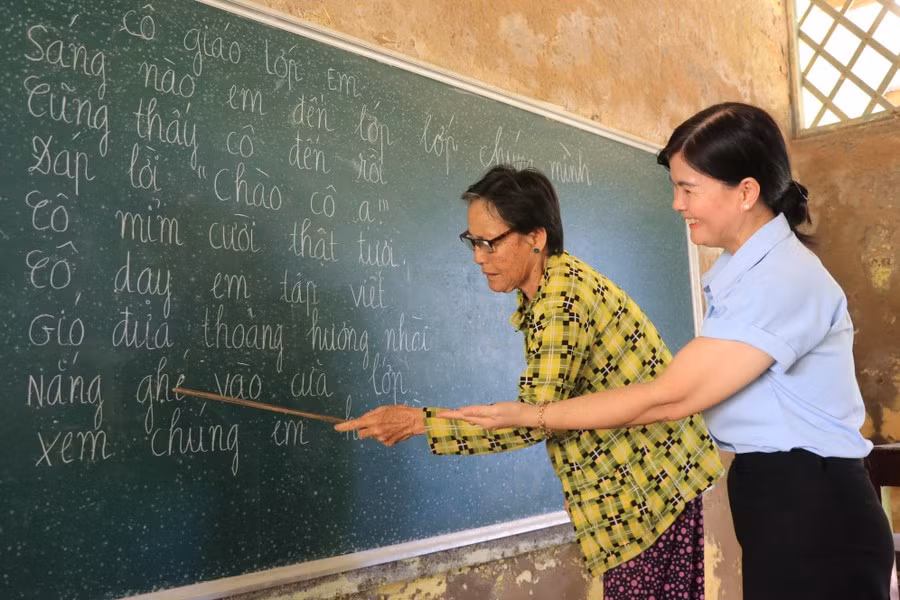 Cô giáo lớp Em
Sáng nào em đến lớp
Cũng thấy cô đến rồi
Đáp lời "Chào cô ạ"
Cô mỉm cười thật tươi.
Cô dạy em tập viết
Gió đưa thoảng hương nhài
Nắng ghé vào cửa lớp
xem chúng em
lớp chúng mình